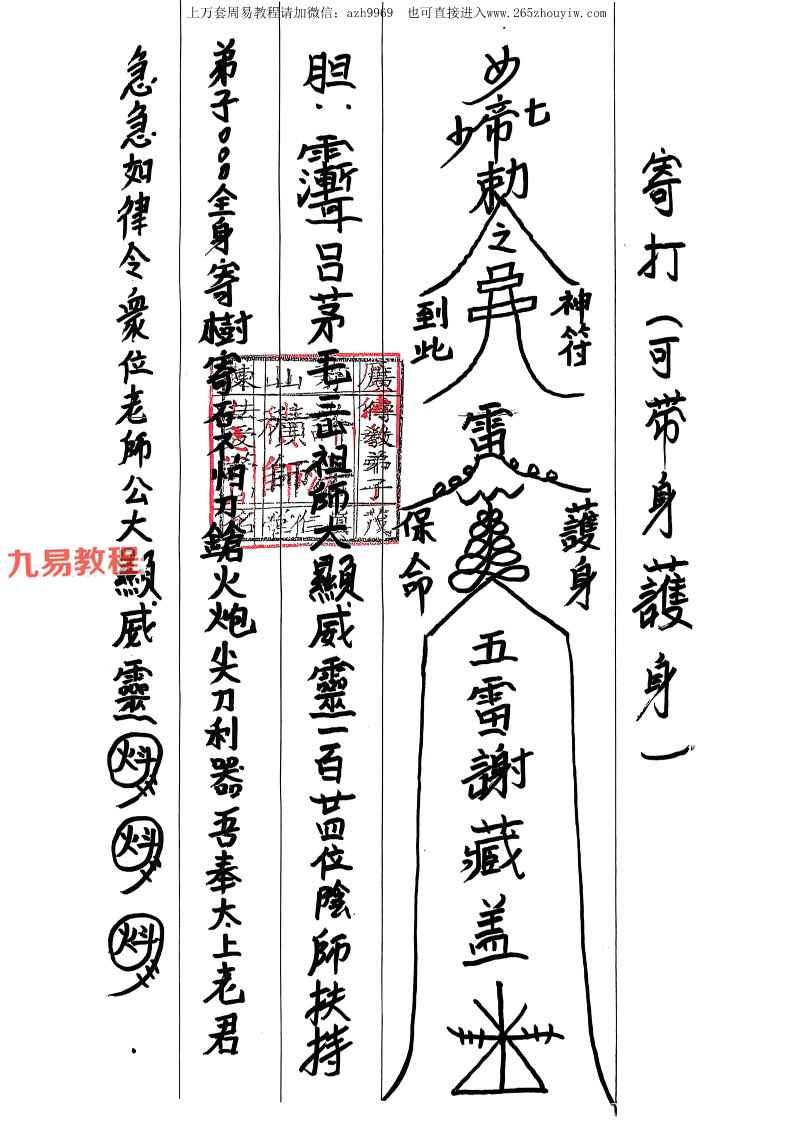 上万套周易教程请加微信：azh9969 也可直接进入www.265zhouyiw.com
寄打（可带身護身）
七
少
帝
敕
之
神符
到此
雷
護身
保命
五雷謝藏盖
胆
呂茅毛三山祖師大顯威靈一百廿四位陰師扶持
弟子000全身寄樹寄石不怕刀鎗火炮尖刀利器吾奉太上老君
急急如律令衆位老師公大顯威靈
九易教程
廣傳教弟子